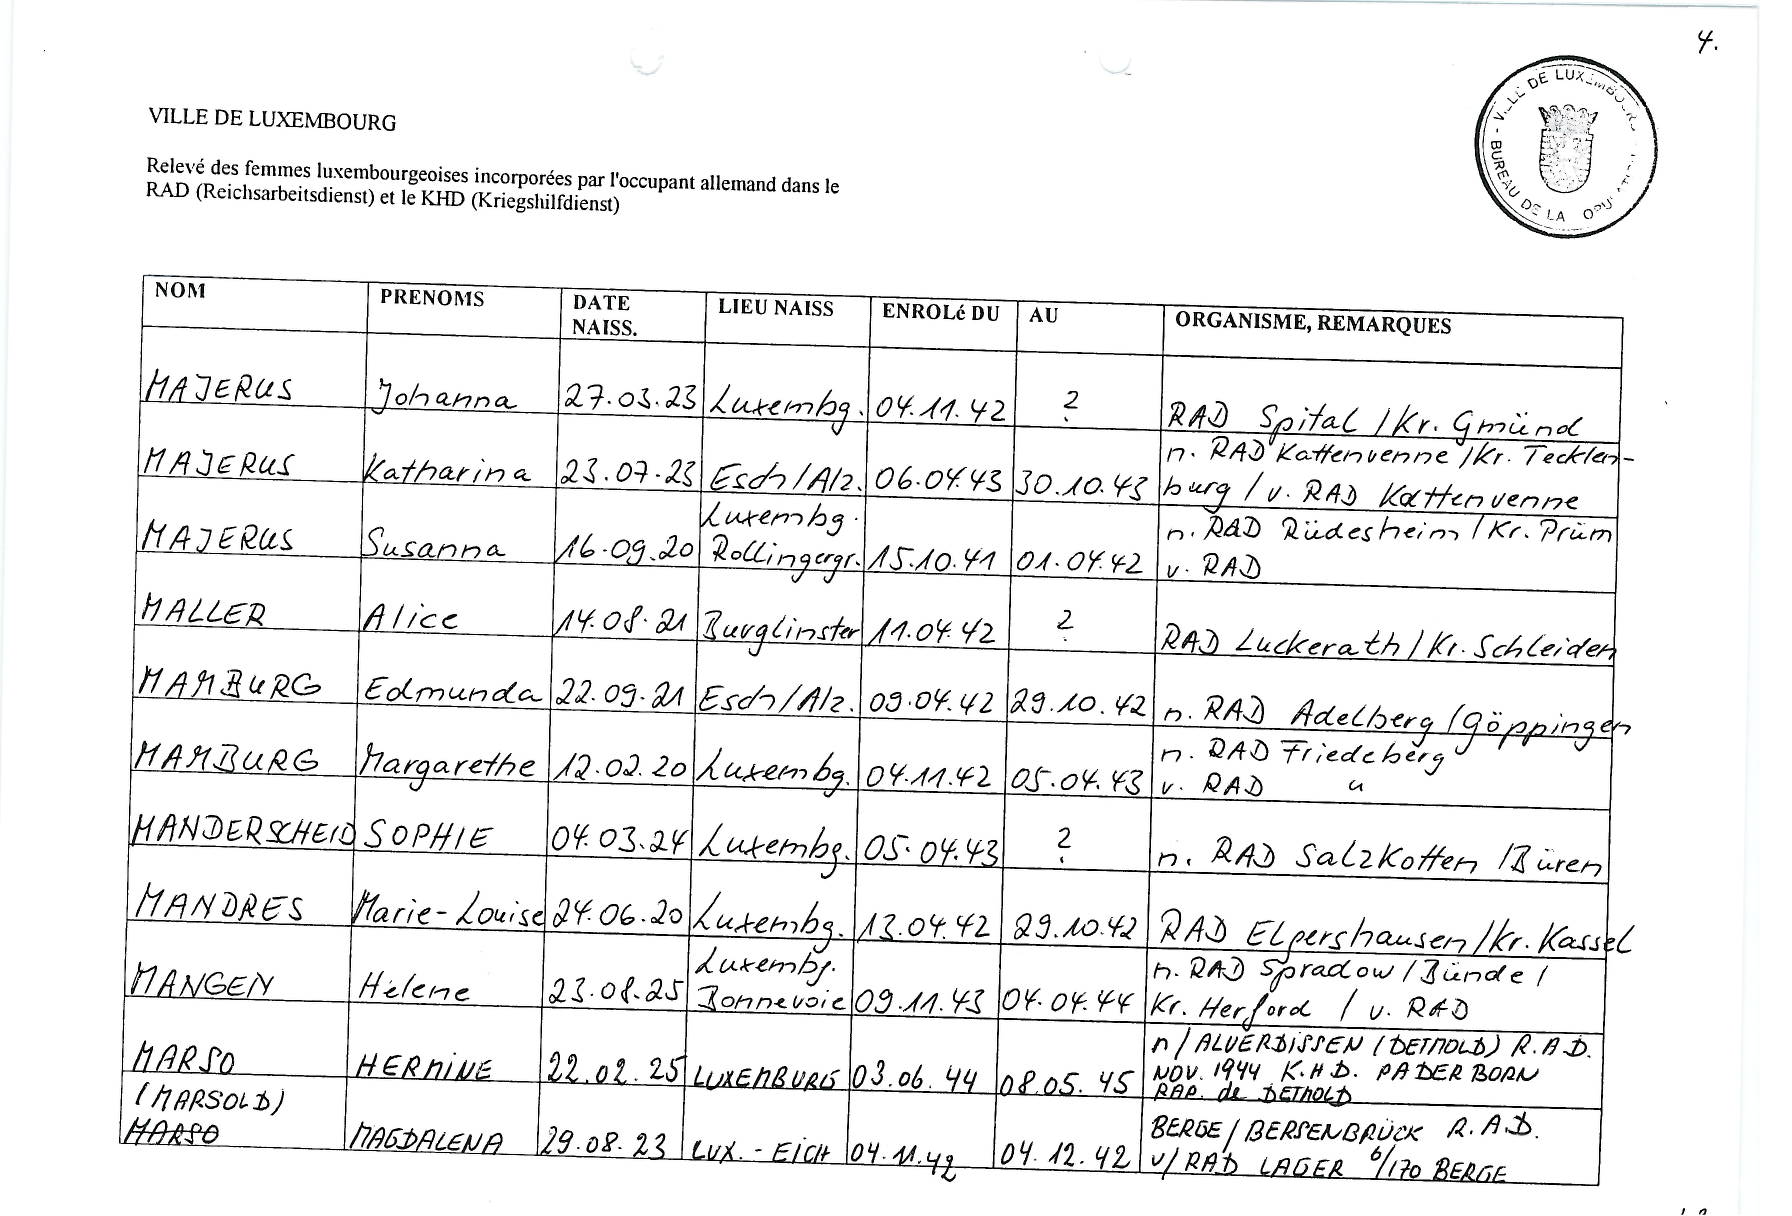 4.
VILLE DE LUXEMBOURG
BUREAU DE LA
VILLE DE LUXEMBOURG
Relevé des femmes luxembourgeoises incorporées par l'occupant allemand dans le
RAD (Reichsarbeitsdienst) et le KHD (Kriegshilfdienst)
NOM PRENOMS DATE NAISS. LIEU NAISS ENROLé DU AU ORGANISME, REMARQUES
MAJERUS Johanna 27.03.23 Luxembg. 04.11.42 ? RAD Spital / Kr. Gmünd
MAJERUS Katharina 23.07.23 Esch/Alz. 06.04.43 30.10.43 n. RAD Kattenvenne / Kr. Tecklen-
burg / v. RAD Kattenvenne
MAJERUS Susanna 16.09.20 Luxembg. Rollingergr. 15.10.41 01.04.42 n. RAD Rüdesheim / Kr. Prüm
v. RAD
MALLER Alice 14.08.21 Burglinster 11.04.42 ? RAD Luckerath / Kr. Schleiden
MAMBURG Edmunda 22.09.21 Esch/Alz. 09.04.42 29.10.42 n. RAD Adelberg / Göppingen
MAMBURG Margarethe 12.02.20 Luxembg. 04.11.42 05.04.43 n. RAD Friedeberg
v. RAD "
MANDERSCHEID SOPHIE 04.03.24 Luxembg. 05.04.43 ? n. RAD Salzkotten / Büren
MANDRES Marie-Louise 24.06.20 Luxembg. 13.04.42 29.10.42 RAD Elpershausen / Kr. Kassel
MANGEN Helene 23.08.25 Luxembg. Bonnevoie 09.11.43 04.04.44 n. RAD Spradow / Bünde /
Kr. Herford / v. RAD
MARSO HERMINE 22.02.25 LUXEMBURG 03.06.44 08.05.45 n/ ALVERDISSEN (DETMOLD) R.A.D.
NOV. 1944 K.H.D. PADERBORN
RAP. de DETMOLD
(MARSOLD)
MARSO MAGDALENA 29.08.23 LUX.-EICH 04.11.42 04.12.42 BERGE / BERSENBRÜCK R.A.D.
v/ RAD LAGER 6/170 BERGE